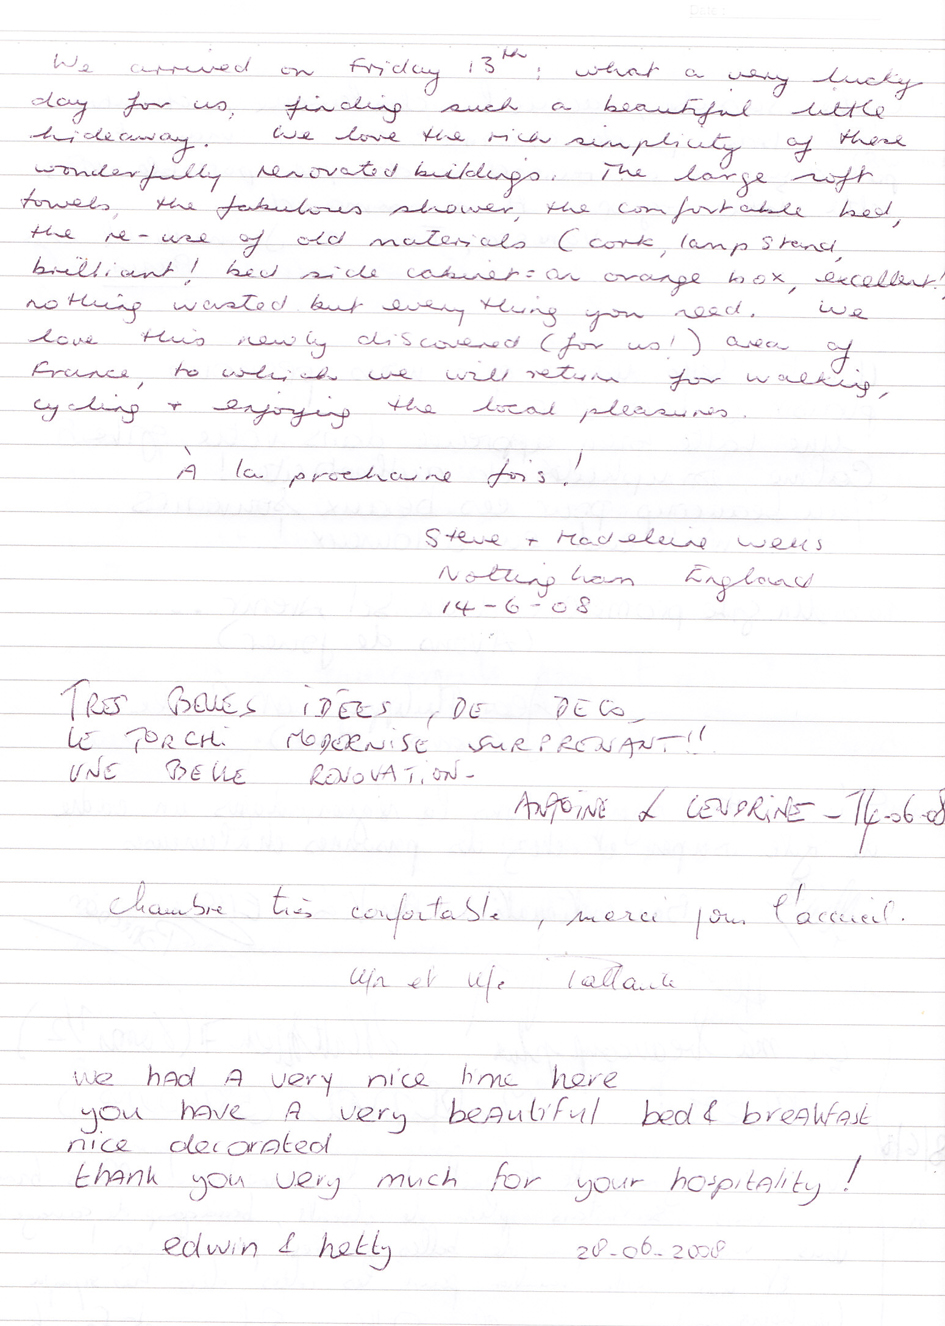 We arrived on Friday 13th; what a very lucky
day for us, finding such a beautiful little
hideaway. We love the rich simplicity of these
wonderfully renovated buildings. The large soft
towels, the fabulous shower, the comfortable bed,
the re-use of old materials (cork, lamp stand,
brilliant! bed side cabinet = an orange box, excellent!,
nothing wasted but every thing you need. We
love this newly discovered (for us!) area of
France, to which we will return for walking,
cycling + enjoying the local pleasures.
À la prochaine fois!
Steve + Madeleine Wells
Nottingham England
14-6-08
TRES BELLES IDÉES, DE DECO_
LE TORCHI MODERNISE SURPRENANT!!
UNE BELLE RENOVATION-
ANTOINE & CENDRINE - 14-06-08
Chambre très confortable, merci pour l'accueil.
et
we had a very nice time here
you have a very beautiful bed & breakfast
nice decorated
thank you very much for your hospitality!
edwin & hetty 28-06-2008